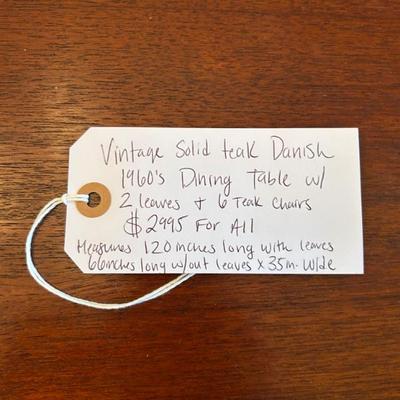 Vintage Solid teak Danish
1960's Dining Table w/
2 leaves + 6 Teak Chairs
$ 2995 For All
Measures 120 inches long with leaves
66inches long w/out leaves x 35in. Wide